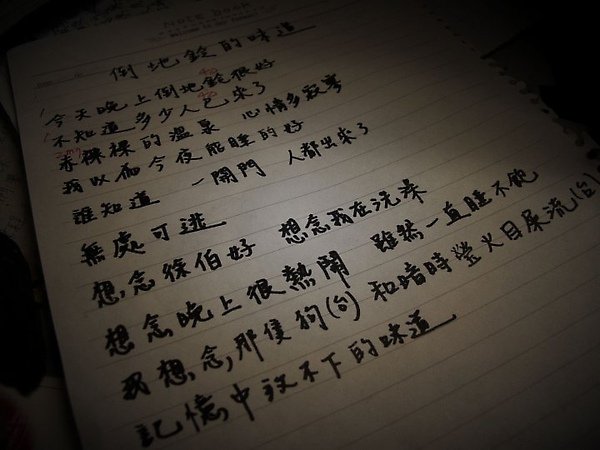 Note Book
倒地鈴的味道
今天晚上倒地鈴很好
不知道多少人已來了
赤裸裸的溫泉 心情多寂寞
我以為今夜能睡的好
誰知道 一開門 人都出來了
無處可逃
想念徐伯好 想念我在洗澡
想念晚上很熱鬧 雖然一直睡不飽
我想念那隻狗(台) 和暗時螢火目屎流(台)
記憶中放不下的味道